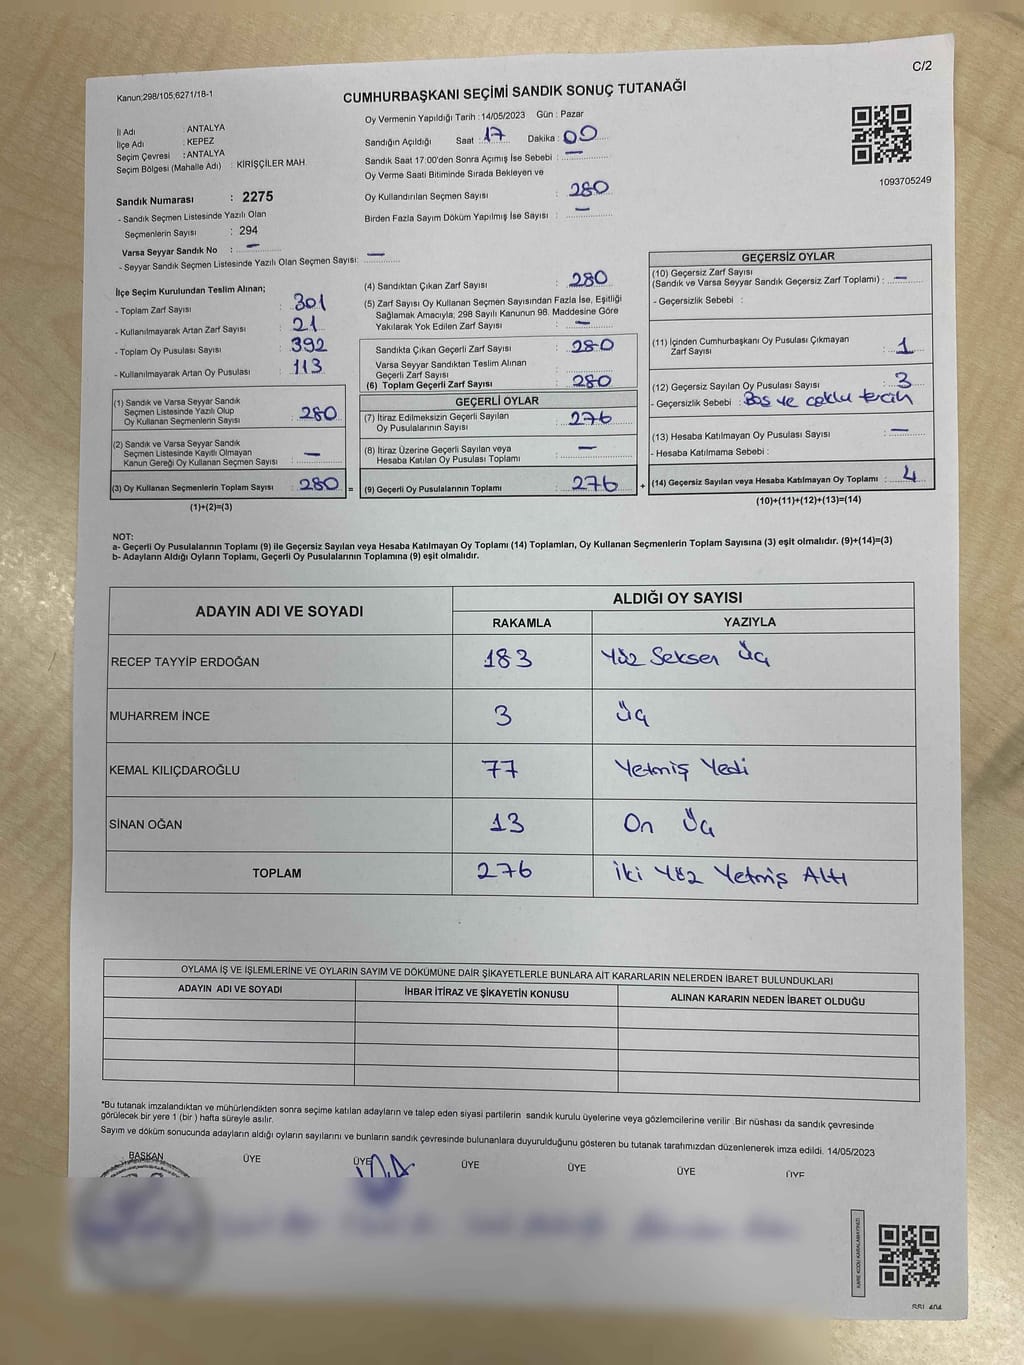 C/2
Kanun;298/105,6271/18-1
CUMHURBAŞKANI SEÇİMİ SANDIK SONUÇ TUTANAĞI
İl Adı : ANTALYA
İlçe Adı : KEPEZ
Seçim Çevresi : ANTALYA
Seçim Bölgesi (Mahalle Adı) : KİRİŞÇİLER MAH.
Oy Vermenin Yapıldığı Tarih : 14/05/2023 Gün : Pazar
Sandığın Açıldığı Saat : 17 Dakika : 00
Sandık Saat 17:00'den Sonra Açımış İse Sebebi : —
Oy Verme Saati Bitiminde Sırada Bekleyen ve
Oy Kullandırılan Seçmen Sayısı : 280
Birden Fazla Sayım Döküm Yapılmış İse Sayısı : —
1093705249
Sandık Numarası : 2275
- Sandık Seçmen Listesinde Yazılı Olan
Seçmenlerin Sayısı : 294
Varsa Seyyar Sandık No : —
- Seyyar Sandık Seçmen Listesinde Yazılı Olan Seçmen Sayısı: —
İlçe Seçim Kurulundan Teslim Alınan;
- Toplam Zarf Sayısı : 301
- Kullanılmayarak Artan Zarf Sayısı : 21
- Toplam Oy Pusulası Sayısı : 392
- Kullanılmayarak Artan Oy Pusulası : 113
(1) Sandık ve Varsa Seyyar Sandık
Seçmen Listesinde Yazılı Olup
Oy Kullanan Seçmenlerin Sayısı : 280
(2) Sandık ve Varsa Seyyar Sandık
Seçmen Listesinde Kayıtlı Olmayan
Kanun Gereği Oy Kullanan Seçmen Sayısı : —
(3) Oy Kullanan Seçmenlerin Toplam Sayısı : 280 =
(1)+(2)=(3)
(4) Sandıktan Çıkan Zarf Sayısı : 280
(5) Zarf Sayısı Oy Kullanan Seçmen Sayısından Fazla İse, Eşitliği
Sağlamak Amacıyla; 298 Sayılı Kanunun 98. Maddesine Göre
Yakılarak Yok Edilen Zarf Sayısı : —
Sandıkta Çıkan Geçerli Zarf Sayısı : 280
Varsa Seyyar Sandıktan Teslim Alınan
Geçerli Zarf Sayısı
(6) Toplam Geçerli Zarf Sayısı : 280
GEÇERLİ OYLAR
(7) İtiraz Edilmeksizin Geçerli Sayılan
Oy Pusulalarının Sayısı : 276
(8) İtiraz Üzerine Geçerli Sayılan veya
Hesaba Katılan Oy Pusulası Toplamı : —
(9) Geçerli Oy Pusulalarının Toplamı : 276 +
GEÇERSİZ OYLAR
(10) Geçersiz Zarf Sayısı
(Sandık ve Varsa Seyyar Sandık Geçersiz Zarf Toplamı) : —
- Geçersizlik Sebebi :
(11) İçinden Cumhurbaşkanı Oy Pusulası Çıkmayan
Zarf Sayısı : 1
(12) Geçersiz Sayılan Oy Pusulası Sayısı : 3
- Geçersizlik Sebebi : Boş ve çoklu tercih
(13) Hesaba Katılmayan Oy Pusulası Sayısı : —
- Hesaba Katılmama Sebebi :
(14) Geçersiz Sayılan veya Hesaba Katılmayan Oy Toplamı : 4
(10)+(11)+(12)+(13)=(14)
NOT:
a- Geçerli Oy Pusulalarının Toplamı (9) ile Geçersiz Sayılan veya Hesaba Katılmayan Oy Toplamı (14) Toplamları, Oy Kullanan Seçmenlerin Toplam Sayısına (3) eşit olmalıdır. (9)+(14)=(3)
b- Adayların Aldığı Oyların Toplamı, Geçerli Oy Pusulalarının Toplamına (9) eşit olmalıdır.
ADAYIN ADI VE SOYADI
ALDIĞI OY SAYISI
RAKAMLA YAZIYLA
RECEP TAYYİP ERDOĞAN 183 Yüz Seksen Üç
MUHARREM İNCE 3 Üç
KEMAL KILIÇDAROĞLU 77 Yetmiş Yedi
SİNAN OĞAN 13 On Üç
TOPLAM 276 İki Yüz Yetmiş Altı
OYLAMA İŞ VE İŞLEMLERİNE VE OYLARIN SAYIM VE DÖKÜMÜNE DAİR ŞİKAYETLERLE BUNLARA AİT KARARLARIN NELERDEN İBARET BULUNDUKLARI
ADAYIN ADI VE SOYADI İHBAR İTİRAZ VE ŞİKAYETİN KONUSU ALINAN KARARIN NEDEN İBARET OLDUĞU
*Bu tutanak imzalandıktan ve mühürlendikten sonra seçime katılan adayların ve talep eden siyasi partilerin sandık kurulu üyelerine veya gözlemcilerine verilir .Bir nüshası da sandık çevresinde
görülecek bir yere 1 (bir ) hafta süreyle asılır.
Sayım ve döküm sonucunda adayların aldığı oyların sayılarını ve bunların sandık çevresinde bulunanlara duyurulduğunu gösteren bu tutanak tarafımızdan düzenlenerek imza edildi. 14/05/2023
BAŞKAN ÜYE ÜYE ÜYE ÜYE ÜYE ÜYE